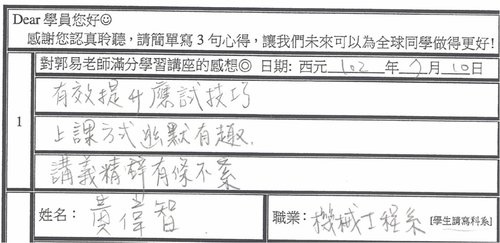 Dear 學員您好☺
感謝您認真聆聽，請簡單寫 3 句心得，讓我們未來可以為全球同學做得更好!
對郭易老師滿分學習講座的感想◎ 日期: 西元 102 年 7 月 10日
1
有效提升應試技巧
上課方式幽默有趣.
講義精闢有條不紊
姓名： 黃偉智
職業： 機械工程系 [學生請寫科系]